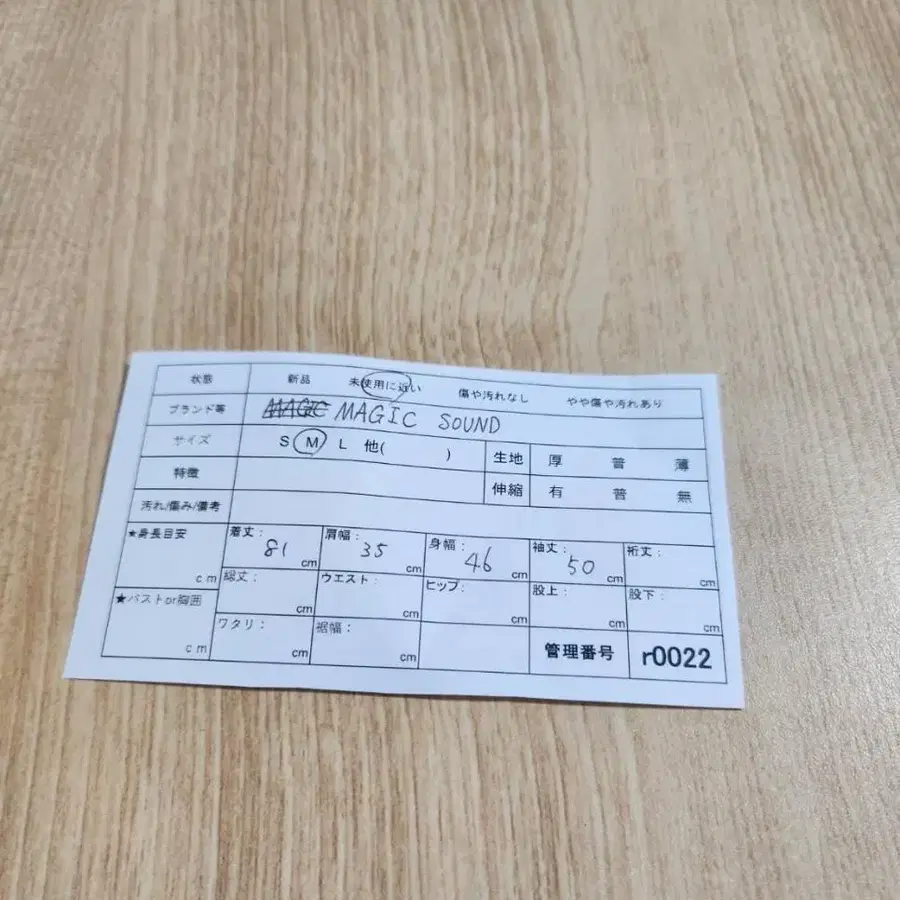 状態 新品 未使用に近い 傷や汚れなし やや傷や汚れあり
ブランド等 MAGIC MAGIC SOUND
サイズ S M L 他( ) 生地 厚 普 薄
特徴 伸縮 有 普 無
汚れ/傷み/備考
★身長目安 cm 着丈: 81 cm 肩幅: 35 cm 身幅: 46 cm 袖丈: 50 cm 裄丈: cm
総丈: cm ウエスト: cm ヒップ: cm 股上: cm 股下: cm
★バストor胸囲 cm ワタリ: cm 裾幅: cm 管理番号 r0022